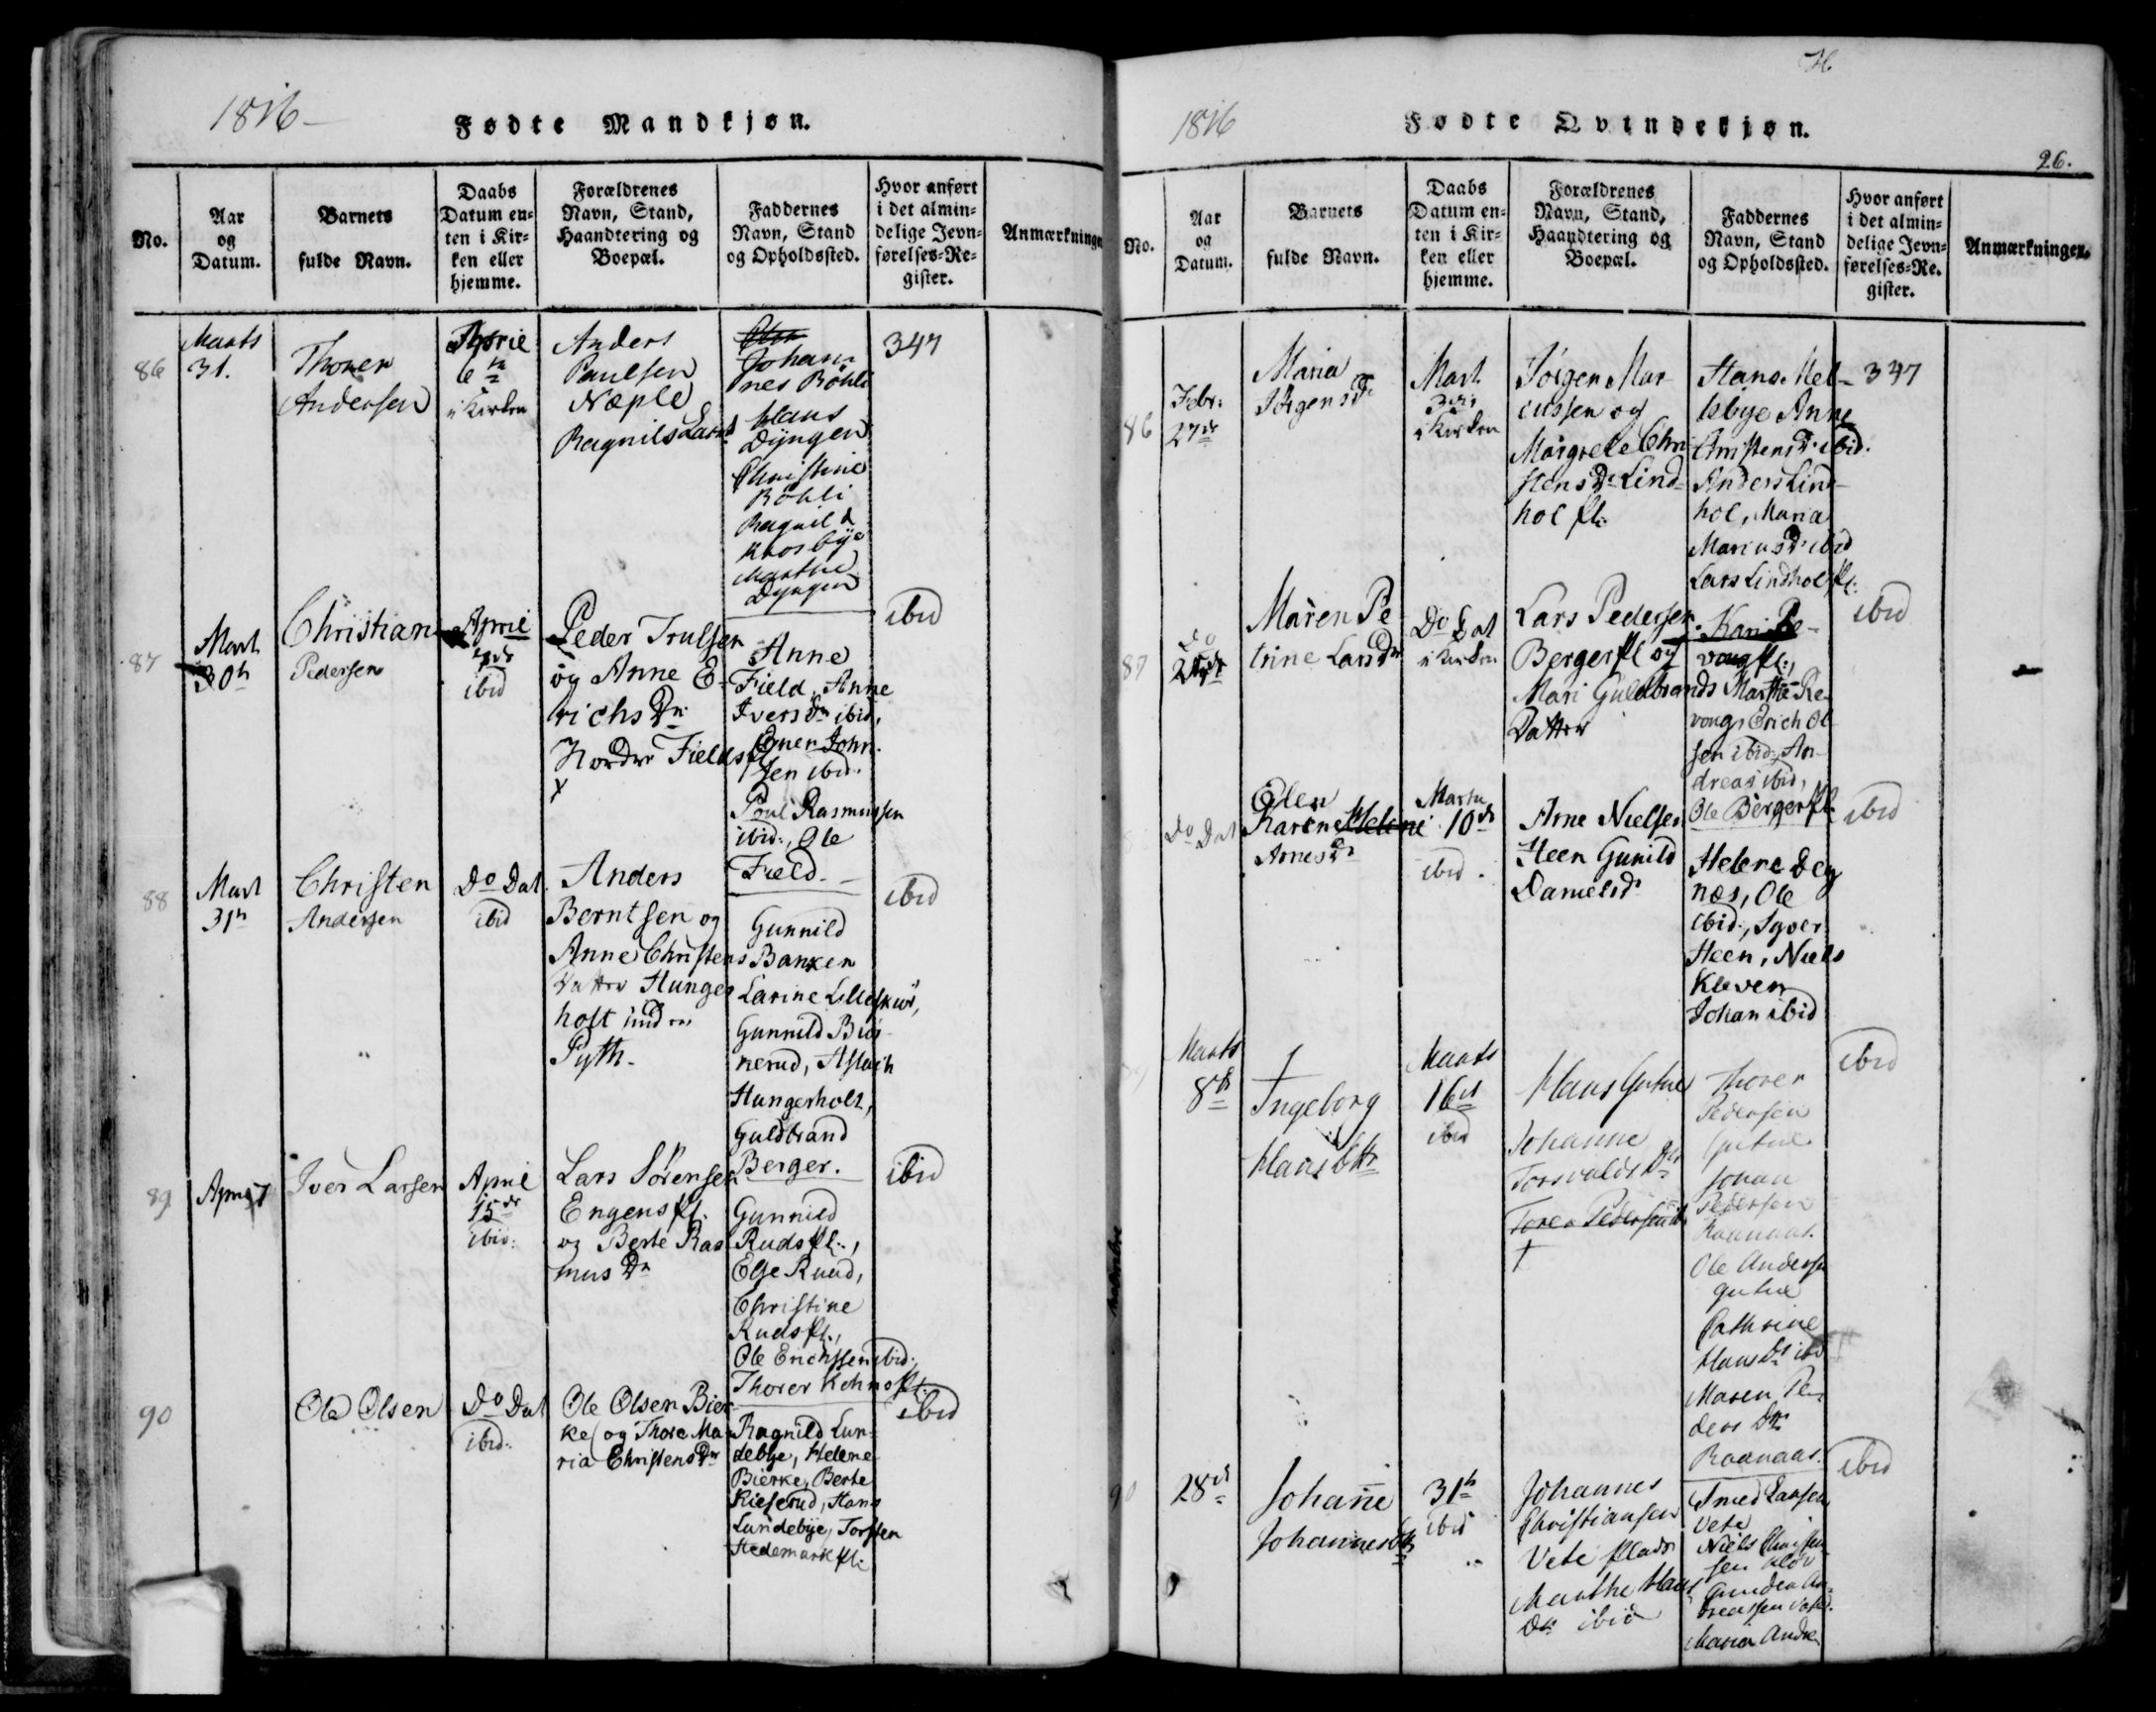 1816
Fødte Mandkjøn.
No.
Aar
og
Datum.
Barnets
fulde Navn.
Daabs
Datum en-
ten i Kir-
ken eller
hjemme.
Forældrenes
Navn, Stand,
Haandtering og
Boepæl.
Faddernes
Navn, Stand
og Opholdssted.
Hvor anført
i det almin-
delige Jevn-
førelses-Re-
gister.
Anmærkninge
86
Marts
31.
Thorer
Andersen
6te
i Kirken
Anders
Paulsen
Næple
Johan
nes Böhli
Hans
Dyngen
Christine
Böhli
Ragnild
Krosbye
Marthe
Dyngen
347
87
Mart
30th
Christian
Pedersen
April
ibid
Peder Trulsen
og Anne E-
richs Dr
Nordre Fields pl
x
Anne
Field, Anne
Ivers Dr ibid,
Iohn-
sen ibid.
Poul Rasmussen
ibid:, Ole
Field.
ibid
88
Mart
31th
Christen
Andersen
Do Dat.
ibid
Anders
Berntsen og
Anne Christens
Datter Hunger
holt
Gunnild
Banken
Larine
Gunnild Biör
nerud, Aslach
Hungerholt,
Guldbrand
Berger.
ibid
89
Iver Larsen
April
15de
ibid:
Lars Sörensen
Engens pl.
og Berte Ras
mus Dr
Gunnild
Ruds pl.,
Else Ruud,
Christine
Ruds pl.,
Ole Erichsen ibid.
Thorer
ibid
90
Ole Olsen
Do Dat
ibid.
Ole Olsen Bier-
ke og Thore Ma-
ria Christens Dr
Ragnild Lun-
debye, Helene
Bierke, Berte
Kieserud, Hans
Lundebye, Torsten
Hedemark pl.
ibid
1816
Fødte Qvindekjøn.
26.
No.
Aar
og
Datum.
Barnets
fulde Navn.
Daabs
Datum en-
ten i Kir-
ken eller
hjemme.
Forældrenes
Navn, Stand,
Haandtering og
Boepæl.
Faddernes
Navn, Stand
og Opholdssted.
Hvor anført
i det almin-
delige Jevn-
førelses-Re-
gister.
Anmærkninger.
86
Febr:
27de
Maria
Jörgens Dr
Mart
3die
i Kirken
Jörgen Mar
cussen og
Margrete Chri
stens Dr Lind-
hol pl.
Hans Mel-
lebye Anne
Christens Dr ibid.
Anders Lind-
hol, Maria
Marius Dr ibid
Lars Lindhol pl.
347
87
do
Maren Pe
trine Lars Dr
Do Dat
i Kirken
Lars Pedersen
Berger pl og
Mari Guldbrands
Datter
Kari Re-
vong pl.,
Marthe Re-
vong, Erich Ol-
sen ibid, An-
dreas ibid,
Ole Berger pl
ibid
Do Dat
Elen
Karine Helene
Arnes Dr
Marts
10de
ibid.
Arne Nielsen
Heen Gunild
Daniels Dr
Helene Deg
næs, Ole
ibid., Syver
Heen, Niels
Kleven
Johan ibid
ibid
Marts
8de
Ingeborg
Hans Dtr
Marts
16de
ibid
Hans
Johanne
Torvalds Dtr
Torer Pedersen
Thorer
Pedersen
Johan
Pedersen
Raanaas.
Ole Andersen
Cathrine
Hans Dtr ibid
Maren Pe-
ders Dtr
Raanaas.
ibid
90
28de
Johanne
Johannes Dtr
31th
ibid
Johannes
Christiansen
Vete plads
Marthe Hans
Dtr ibid
Vete
Niels Christen
sen
Maria Andre
ibid